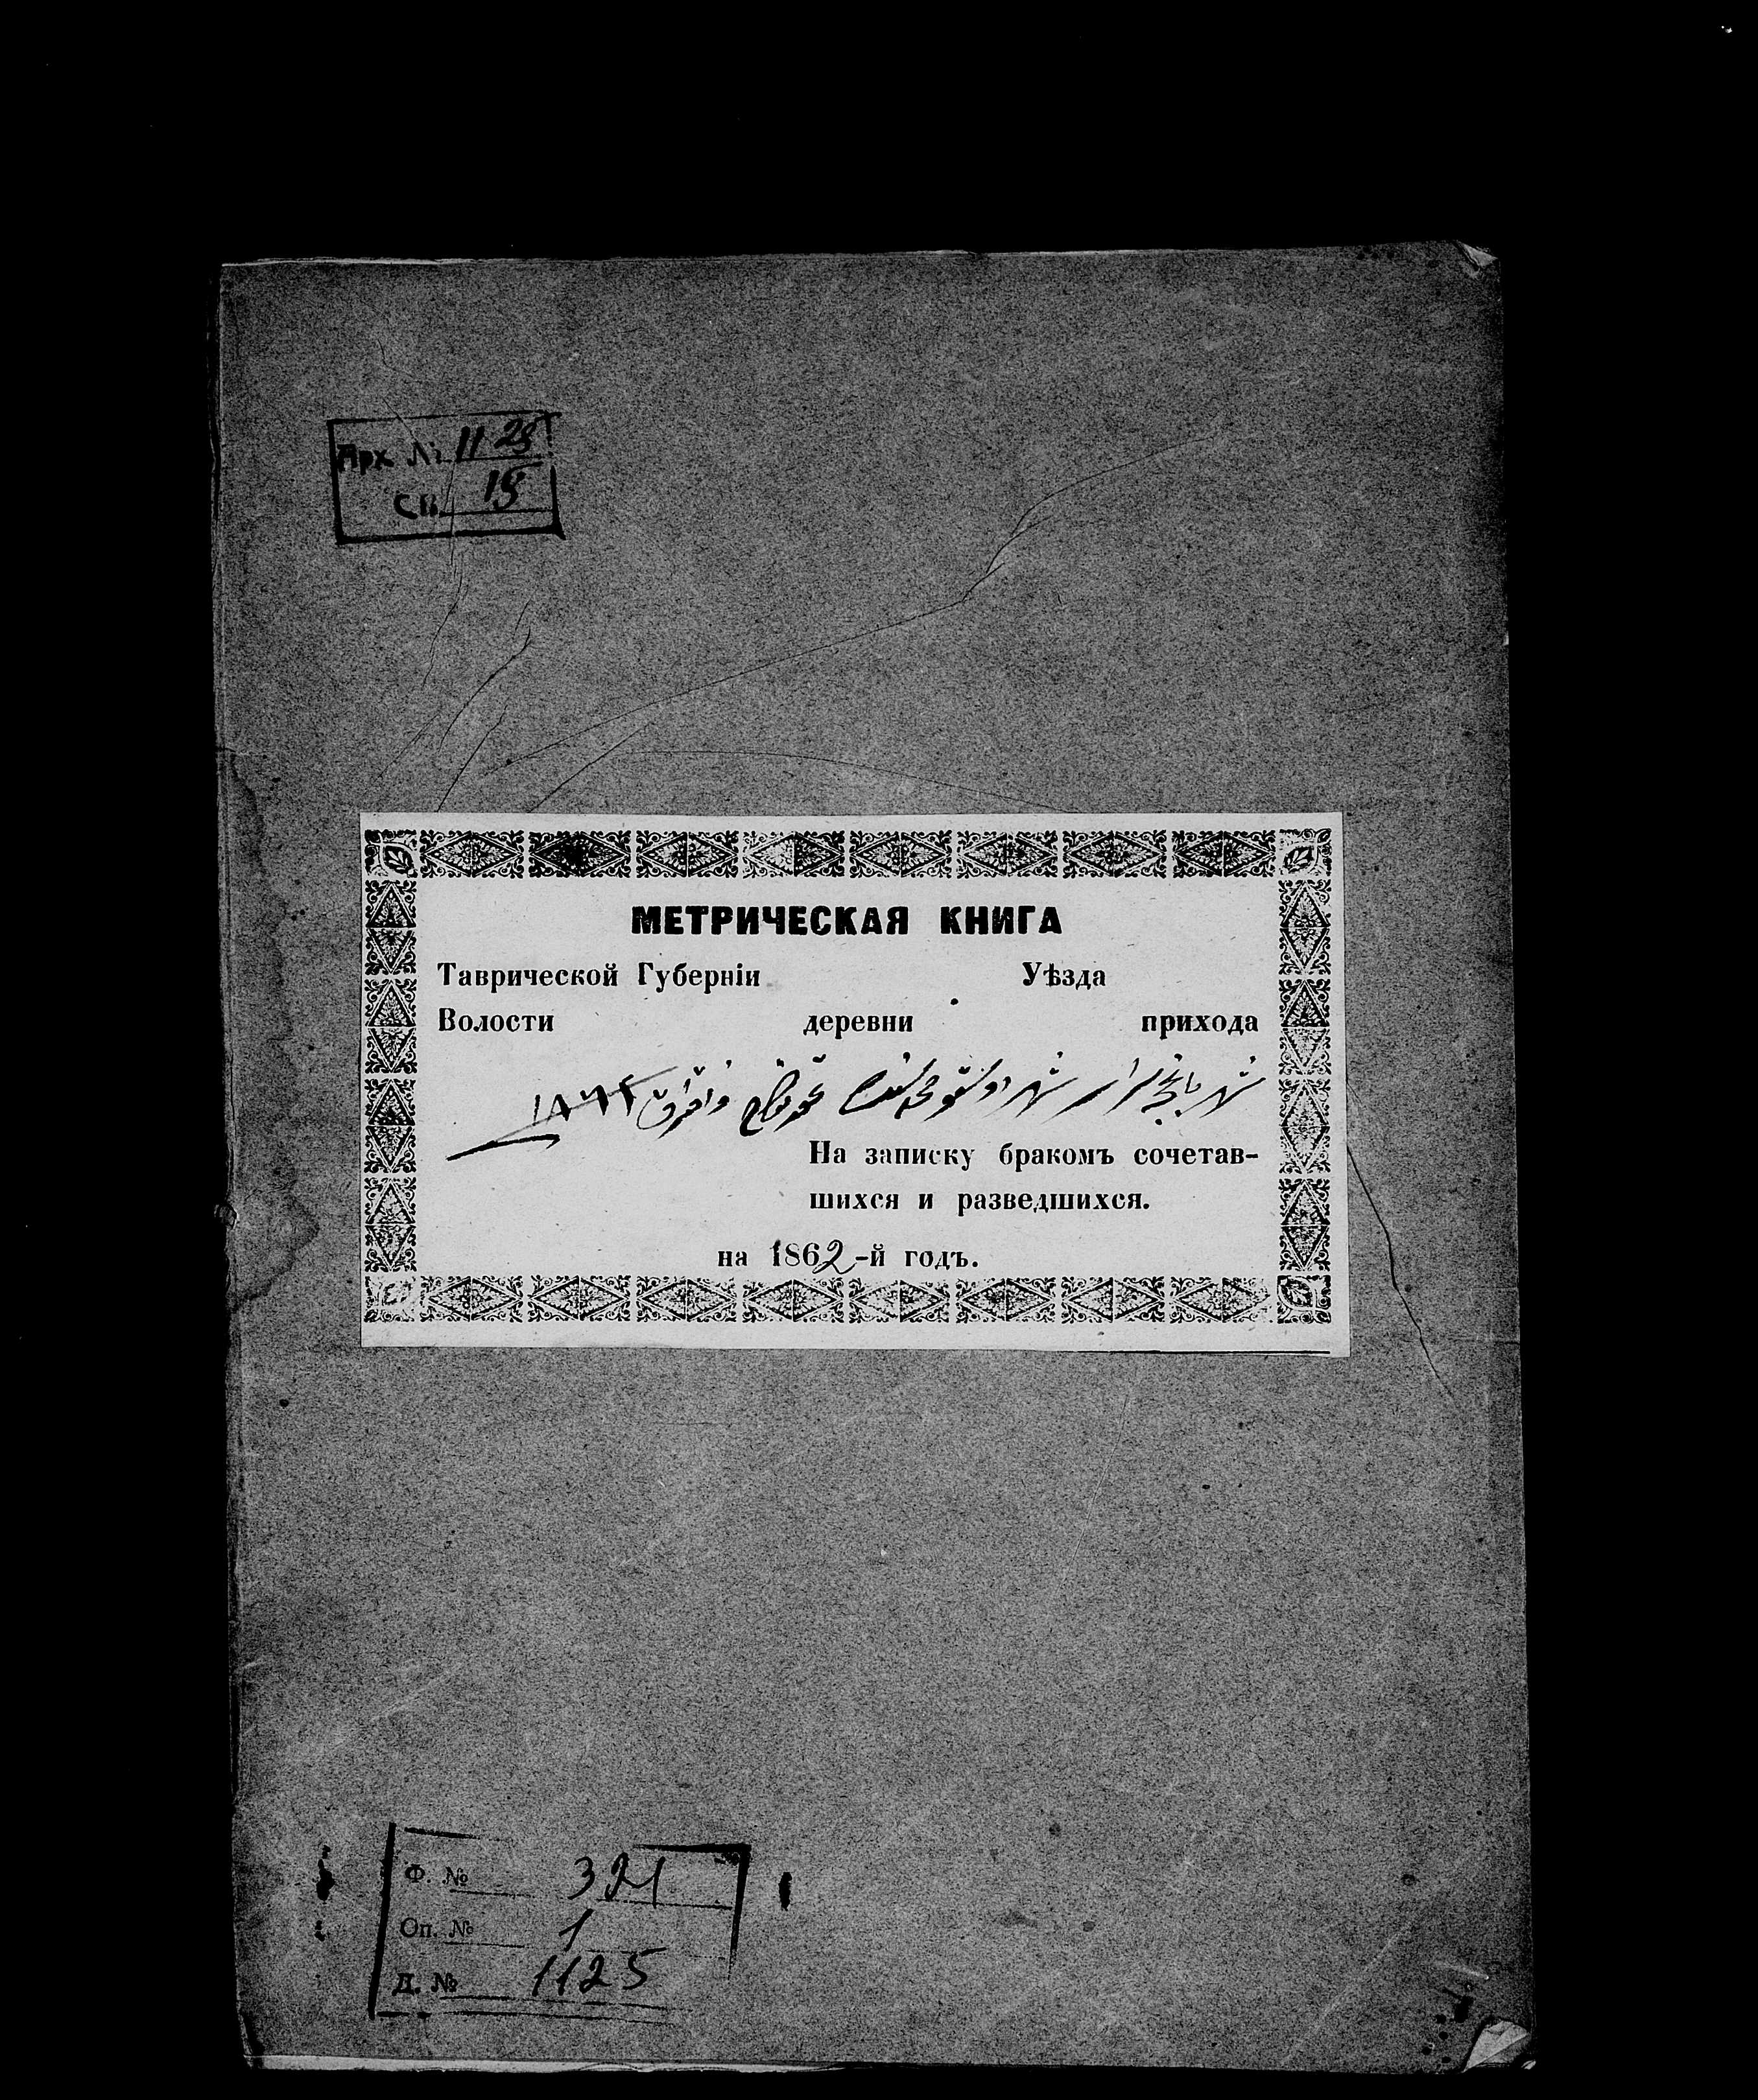 Арх. № 1125
св. 18
МЕТРИЧЕСКАЯ КНИГА
Таврической Губерніи Уѣзда
Волости деревни прихода
شهر باغچه سراى شهر محله سنده نكاح ١٨٦٢
На записку бракомъ сочетав-
шихся и разведшихся.
на 1862-й годъ.
Ф. № 321
Оп. № 1
Д. № 1125